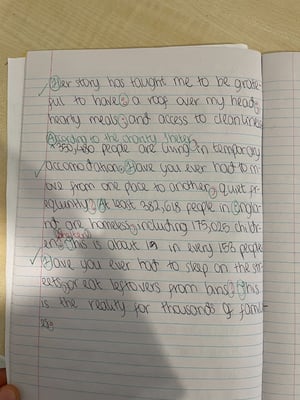 Her story has taught me to be grate-
ful to have a roof over my head,
hearly meals, and access to cleanliness
According to the charity Shelter,
*350,480 people are living in temporary
accomodation. Have you ever had to m-
ove from one place to another, quiet fr-
equintly? At least 382,618 people in Engla-
nd are homeless, including 175,025 childr-
en. This is about 1 in every 153 people
Have you ever had to sleep on the str-
eets, or eat leftovers from bins? This
is the reality for thousands of famil-
ies.